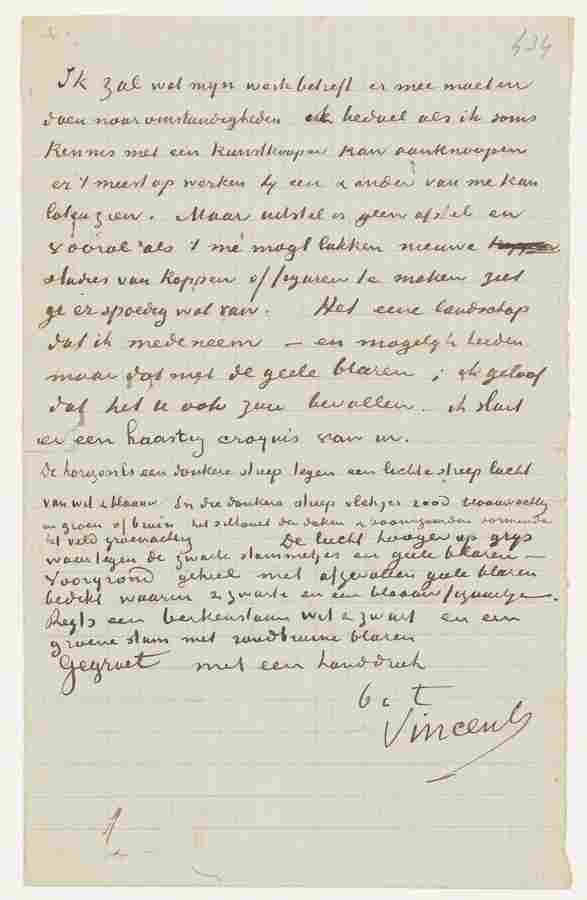 434
Ik zal wat mijn werk betreft er mee moeten
doen naar omstandigheden ik bedoel als ik soms
kennis met een kunstkooper kan aanknoopen
er 't meest op werken hij een & ander van me kan
laten zien. Maar uitstel is geen afstel en
vooral als 't me mogt lukken nieuwe
studies van koppen of figuren te maken ziet
ge er spoedig wat van. Het eene landschap
dat ik medeneem — en mogelijk beiden
maar dat met de geele blaren, ik geloof
dat het U ook zou bevallen. ik sluit
er een haastig croquis van in.
De horizon is een donkere streep tegen een lichte streep lucht
van wit & blaauw. In die donkere streep vlekjes rood blaauwachtig
en groen of bruin het silhouet der daken & boomgaarden vormende
het veld groenachtig De lucht hooger op grijs
waartegen de zwarte stammetjes en geele blaren —
Voorgrond geheel met afgevallen geele blaren
bedekt waarin 2 zwarte en een blaauw figuurtje.
Regts een berkenstam wit & zwart en een
groene stam met roodbruine blaren
Gegroet met een handdruk
b. à t.
Vincent
1